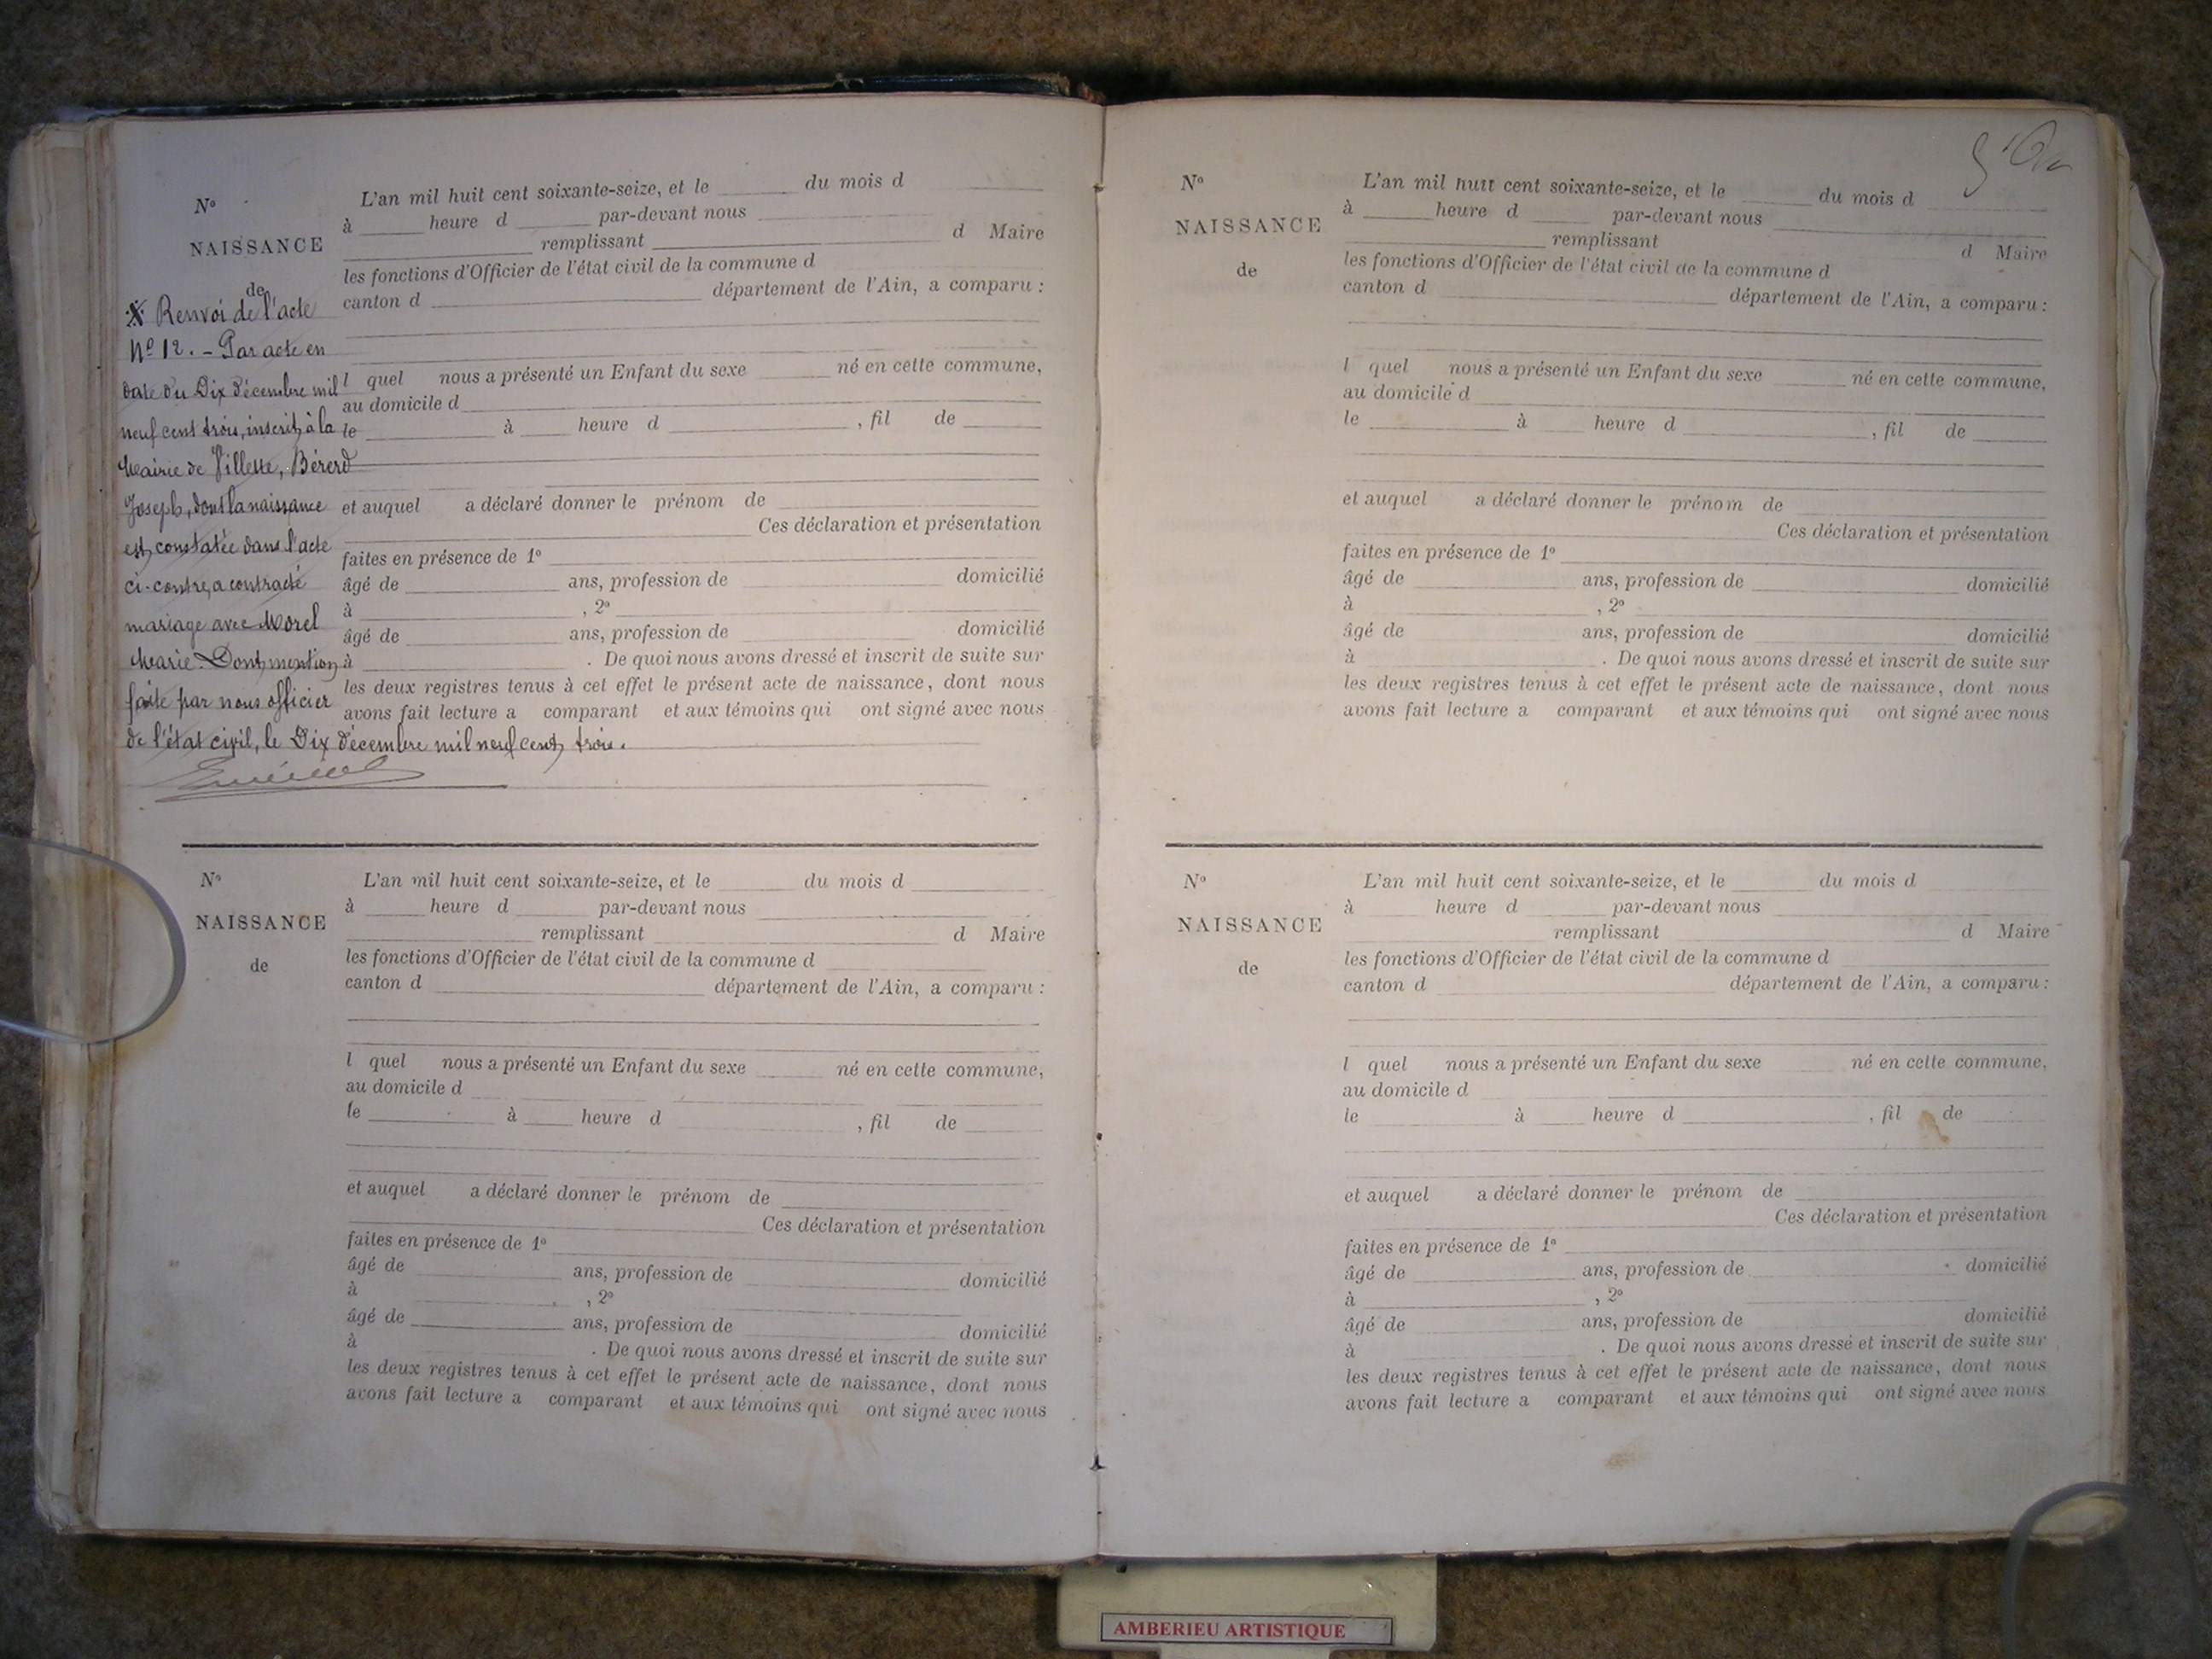 Nº
NAISSANCE
de
※ Renvoi de l'acte
Nº 12. - Par acte en
date du Dix décembre mil
neuf cent trois, inscrit à la
Mairie de Villette, Bérerd
Joseph, dont la naissance
est constatée dans l'acte
ci-contre, a contracté
mariage avec Morel
Marie. Dont mention
faite par nous officier
de l'état civil, le Dix décembre mil neuf cent trois.
L'an mil huit cent soixante-seize, et le du mois d
à heure d par-devant nous
remplissant d Maire
les fonctions d'Officier de l'état civil de la commune d
canton d département de l'Ain, a comparu :
l quel nous a présenté un Enfant du sexe né en cette commune,
au domicile d
le à heure d , fil de
et auquel a déclaré donner le prénom de
Ces déclaration et présentation
faites en présence de 1º
âgé de ans, profession de domicilié
à , 2º
âgé de ans, profession de domicilié
à . De quoi nous avons dressé et inscrit de suite sur
les deux registres tenus à cet effet le présent acte de naissance, dont nous
avons fait lecture a comparant et aux témoins qui ont signé avec nous
Nº
NAISSANCE
de
L'an mil huit cent soixante-seize, et le du mois d
à heure d par-devant nous
remplissant d Maire
les fonctions d'Officier de l'état civil de la commune d
canton d département de l'Ain, a comparu :
l quel nous a présenté un Enfant du sexe né en cette commune,
au domicile d
le à heure d , fil de
et auquel a déclaré donner le prénom de
Ces déclaration et présentation
faites en présence de 1º
âgé de ans, profession de domicilié
à , 2º
âgé de ans, profession de domicilié
à . De quoi nous avons dressé et inscrit de suite sur
les deux registres tenus à cet effet le présent acte de naissance, dont nous
avons fait lecture a comparant et aux témoins qui ont signé avec nous
Nº
NAISSANCE
de
L'an mil huit cent soixante-seize, et le du mois d
à heure d par-devant nous
remplissant d Maire
les fonctions d'Officier de l'état civil de la commune d
canton d département de l'Ain, a comparu :
l quel nous a présenté un Enfant du sexe né en cette commune,
au domicile d
le à heure d , fil de
et auquel a déclaré donner le prénom de
Ces déclaration et présentation
faites en présence de 1º
âgé de ans, profession de domicilié
à , 2º
âgé de ans, profession de domicilié
à . De quoi nous avons dressé et inscrit de suite sur
les deux registres tenus à cet effet le présent acte de naissance, dont nous
avons fait lecture a comparant et aux témoins qui ont signé avec nous
Nº
NAISSANCE
de
L'an mil huit cent soixante-seize, et le du mois d
à heure d par-devant nous
remplissant d Maire
les fonctions d'Officier de l'état civil de la commune d
canton d département de l'Ain, a comparu :
l quel nous a présenté un Enfant du sexe né en cette commune,
au domicile d
le à heure d , fil de
et auquel a déclaré donner le prénom de
Ces déclaration et présentation
faites en présence de 1º
âgé de ans, profession de domicilié
à , 2º
âgé de ans, profession de domicilié
à . De quoi nous avons dressé et inscrit de suite sur
les deux registres tenus à cet effet le présent acte de naissance, dont nous
avons fait lecture a comparant et aux témoins qui ont signé avec nous
AMBERIEU ARTISTIQUE